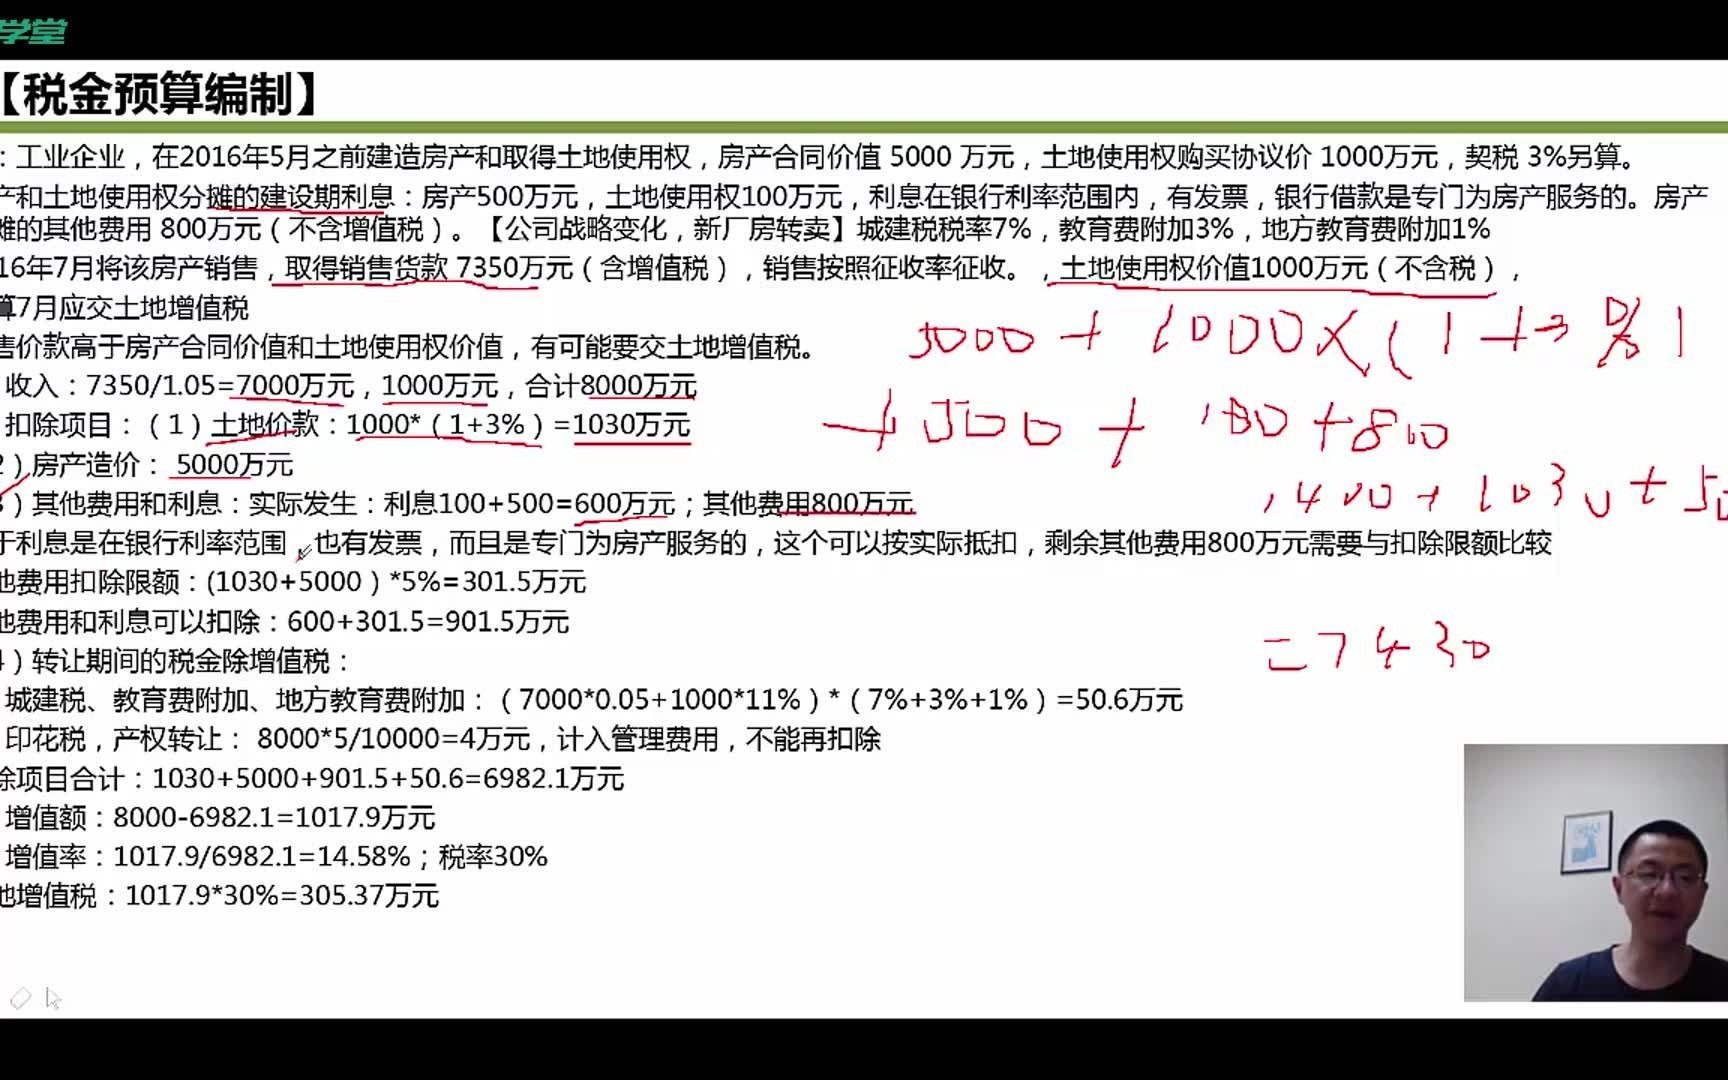 学堂
【税金预算编制】
：工业企业，在2016年5月之前建造房产和取得土地使用权，房产合同价值 5000 万元，土地使用权购买协议价 1000万元，契税 3%另算。
产和土地使用权分摊的建设期利息：房产500万元，土地使用权100万元，利息在银行利率范围内，有发票，银行借款是专门为房产服务的。房产
摊的其他费用 800万元（不含增值税）。【公司战略变化，新厂房转卖】城建税税率7%，教育费附加3%，地方教育费附加1%
16年7月将该房产销售，取得销售货款 7350万元（含增值税），销售按照征收率征收。，土地使用权价值1000万元（不含税），
算7月应交土地增值税
售价款高于房产合同价值和土地使用权价值，有可能要交土地增值税。
5000 + 1000×(1+3%)
收入：7350/1.05=7000万元，1000万元，合计8000万元
扣除项目：（1）土地价款：1000*（1+3%）=1030万元
+500 + 100 +800
2）房产造价： 5000万元
3）其他费用和利息：实际发生：利息100+500=600万元；其他费用800万元
1400 + 1030 + 50
于利息是在银行利率范围，也有发票，而且是专门为房产服务的，这个可以按实际抵扣，剩余其他费用800万元需要与扣除限额比较
他费用扣除限额：(1030+5000）*5%=301.5万元
他费用和利息可以扣除：600+301.5=901.5万元
=7430
4）转让期间的税金除增值税：
城建税、教育费附加、地方教育费附加：（7000*0.05+1000*11%）*（7%+3%+1%）=50.6万元
印花税，产权转让： 8000*5/10000=4万元，计入管理费用，不能再扣除
除项目合计：1030+5000+901.5+50.6=6982.1万元
增值额：8000-6982.1=1017.9万元
增值率：1017.9/6982.1=14.58%；税率30%
地增值税：1017.9*30%=305.37万元